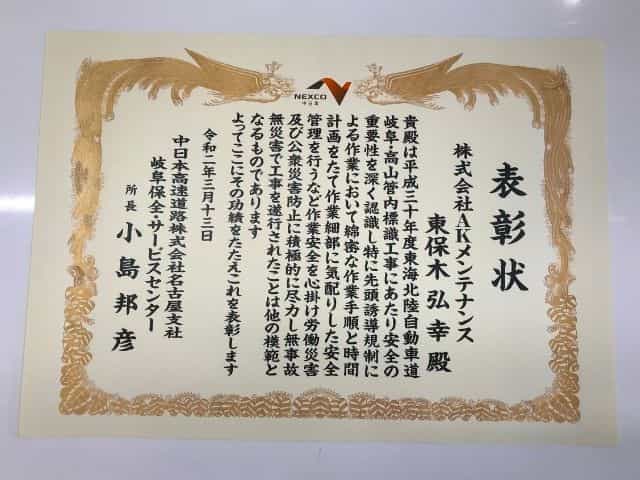 NEXCO
中日本
表彰状
株式会社AKメンテナンス
東保木弘幸殿
貴殿は平成三十年度東海北陸自動車道
岐阜・高山管内標識工事にあたり安全の
重要性を深く認識し特に先頭誘導規制に
よる作業において綿密な作業手順と時間
計画をたて作業細部に気配りした安全
管理を行うなど作業安全を心掛け労働災害
及び公衆災害防止に積極的に尽力し無事故
無災害で工事を遂行されたことは他の模範と
なるものであります
よってここにその功績をたたえこれを表彰します
令和二年三月十三日
中日本高速道路株式会社名古屋支社
岐阜保全・サービスセンター
所長 小島邦彦